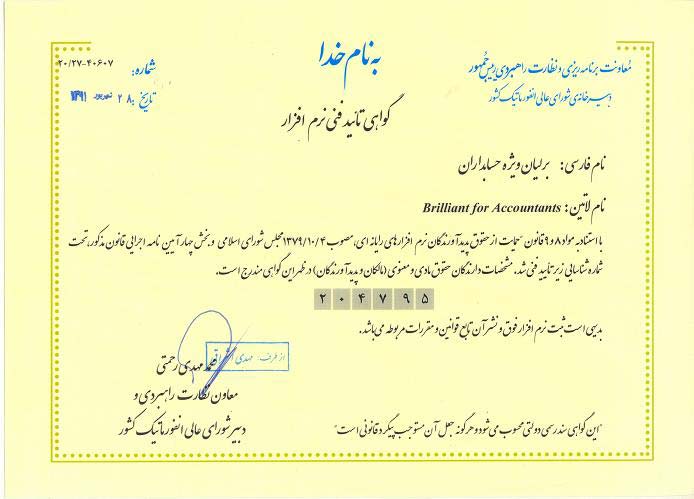 به نام خدا
معاونت برنامه ریزی و نظارت راهبردی رییس جمهور
دبیرخانه‌ی شورای عالی انفورماتیک کشور
شماره: ۲۰/۲۷-۴۰۶۰۷
تاریخ: ۲۸ شهریور ۱۳۹۱
گواهی تائید فنی نرم افزار
نام فارسی: برلیان ویژه حسابداران
نام لاتین: Brilliant for Accountants
با استناد به مواد ۸ و ۹ قانون حمایت از حقوق پدیدآورندگان نرم افزارهای رایانه ای، مصوب ۱۳۷۹/۱۰/۴ مجلس شورای اسلامی و بخش چهار آیین نامه اجرایی قانون مذکور، تحت
شماره شناسایی زیر تایید فنی شد. مشخصات دارندگان حقوق مادی و معنوی (مالکان و پدیدآورندگان) در ظهر این گواهی مندرج است.
۲۰۴۷۹۵
بدیهی است ثبت نرم افزار فوق و نشر آن تابع قوانین و مقررات مربوطه می باشد.
از طرف: مهدی
محمد مهدی رحمتی
معاون نظارت راهبردی و
دبیر شورای عالی انفورماتیک کشور
"این گواهی سند رسمی دولتی محسوب می شود و هرگونه جعل آن مستوجب پیگرد قانونی است"